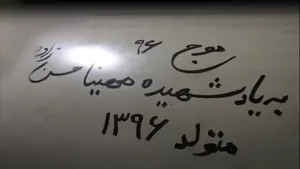 موج ۹۶
به یاد شهیده مهینا حسن زاده
متولد ۱۳۹۶